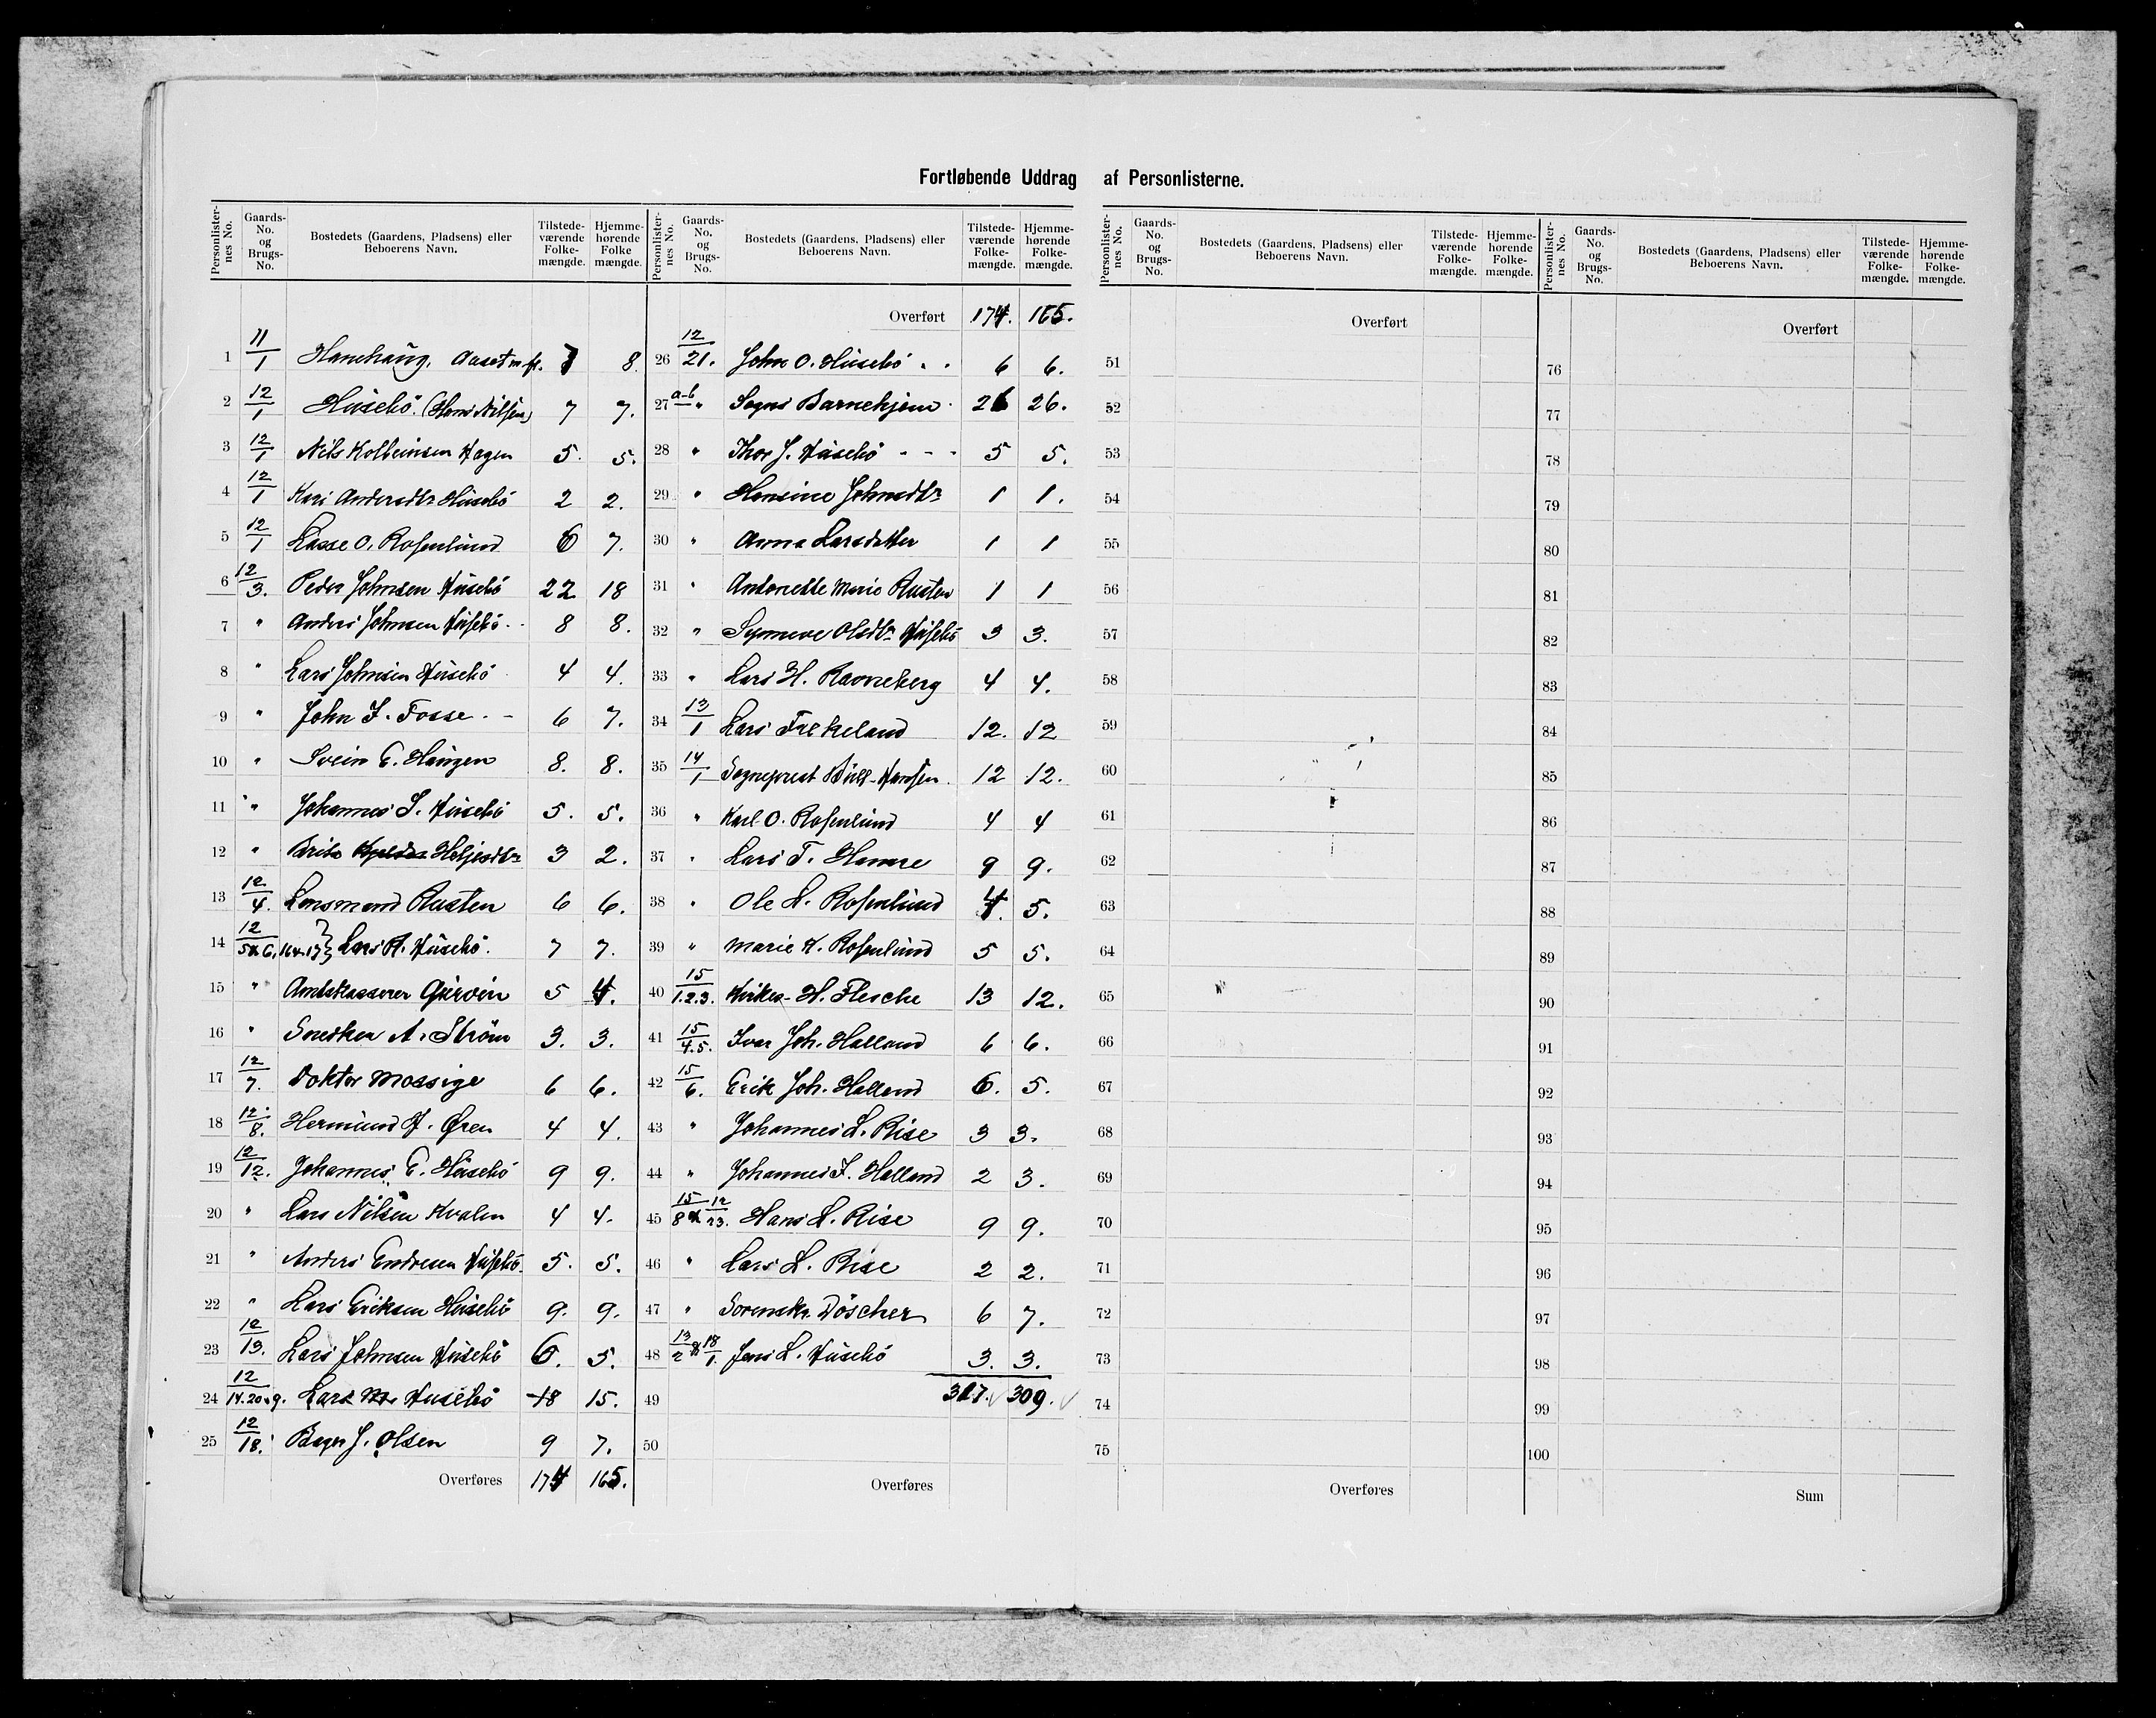 Fortløbende Uddrag af Personlisterne.
Personlisternes No. | Gaards-No. og Brugs-No. | Bostedets (Gaardens, Pladsens) eller Beboerens Navn. | Tilstedeværende Folkemængde. | Hjemmehørende Folkemængde.
1 11/1 Hanehaug, Aaset m. fl. 7 8
2 12/1 Husebö. (Hans Nilsen) 7 7.
3 12/1 Nils Kolbeinsen Hagen 5. 5.
4 12/1 Kari Andersdtr Husebö 2 2.
5 12/1 Lasse O. Rosenlund 6 7.
6 12/3. Peder Johnsen Husebö 22 18
7 " Anders Johnsen Husebö 8 8.
8 " Lars Johnsen Husebö 4 4.
9 " John I. Fosse 6 7.
10 " Svein E. Haugen 8. 8.
11 " Johannes S. Husebö 5. 5.
12 " Brita Heljesdtr 3 2.
13 12/4. Lensmand Rusten 6 6.
14 12/5 & 6, 16 & 17 Lars A. Husebö. 7 7.
15 " Amtskasserer Gjervin 5 4.
16 " Snedker A. Ström 3. 3.
17 12/7. Doktor Mossige 6 6.
18 12/8. Hermund P. Øren 4 4.
19 12/12. Johannes E. Husebö 9 9.
20 " Lars Nilsen Kvalen 4 4.
21 " Anders Endresen Husebö 5. 5.
22 " Lars Eriksen Husebö 9. 9.
23 12/13. Lars Johnsen Husebö 6. 5.
24 12/14.20.9. Lars M. Husebö 18 15.
25 12/18. Bager J. Olsen 9 7.
Overføres 174 165.
Overført 174. 165.
26 12/21. John O. Husebö 6 6.
27 a-b " Sogns Barnehjem 26 26.
28 " Thor J. Husebö 5 5.
29 " Hansine Johnsdtr 1 1.
30 " Anna Larsdatter 1 1
31 " Antonette Marie Rusten 1 1
32 " Synneve Olsdtr Husebö 3 3.
33 " Lars H. Ravneberg 4 4.
34 13/1 Lars Frekeland 12. 12
35 14/1 Sogneprest Bull-Hansen 12 12.
36 " Karl O. Rosenlund 4 4
37 " Lars T. Hamre 9 9.
38 " Ole L. Rosenlund 4. 5.
39 " Marie K. Rosenlund 5 5.
40 15/1.2.3. Kirkes. H. Flesche 13 12.
41 15/4.5. Ivar Joh. Halland 6 6.
42 15/6. Erik Joh. Halland 6. 5.
43 " Johannes L. Rise 3 3.
44 " Johannes I. Halland 2 3.
45 15/8 & 12/23. Hans L. Rise 9 9.
46 " Lars L. Rise 2 2.
47 " Sorenskr. Döscher 6 7.
48 13/2 & 18/1. Jens L. Husebö 3. 3.
49 317. 309.
50
Overføres
Overført
51
52
53
54
55
56
57
58
59
60
61
62
63
64
65
66
67
68
69
70
71
72
73
74
75
Overføres
Overført
76
77
78
79
80
81
82
83
84
85
86
87
88
89
90
91
92
93
94
95
96
97
98
99
100
Sum